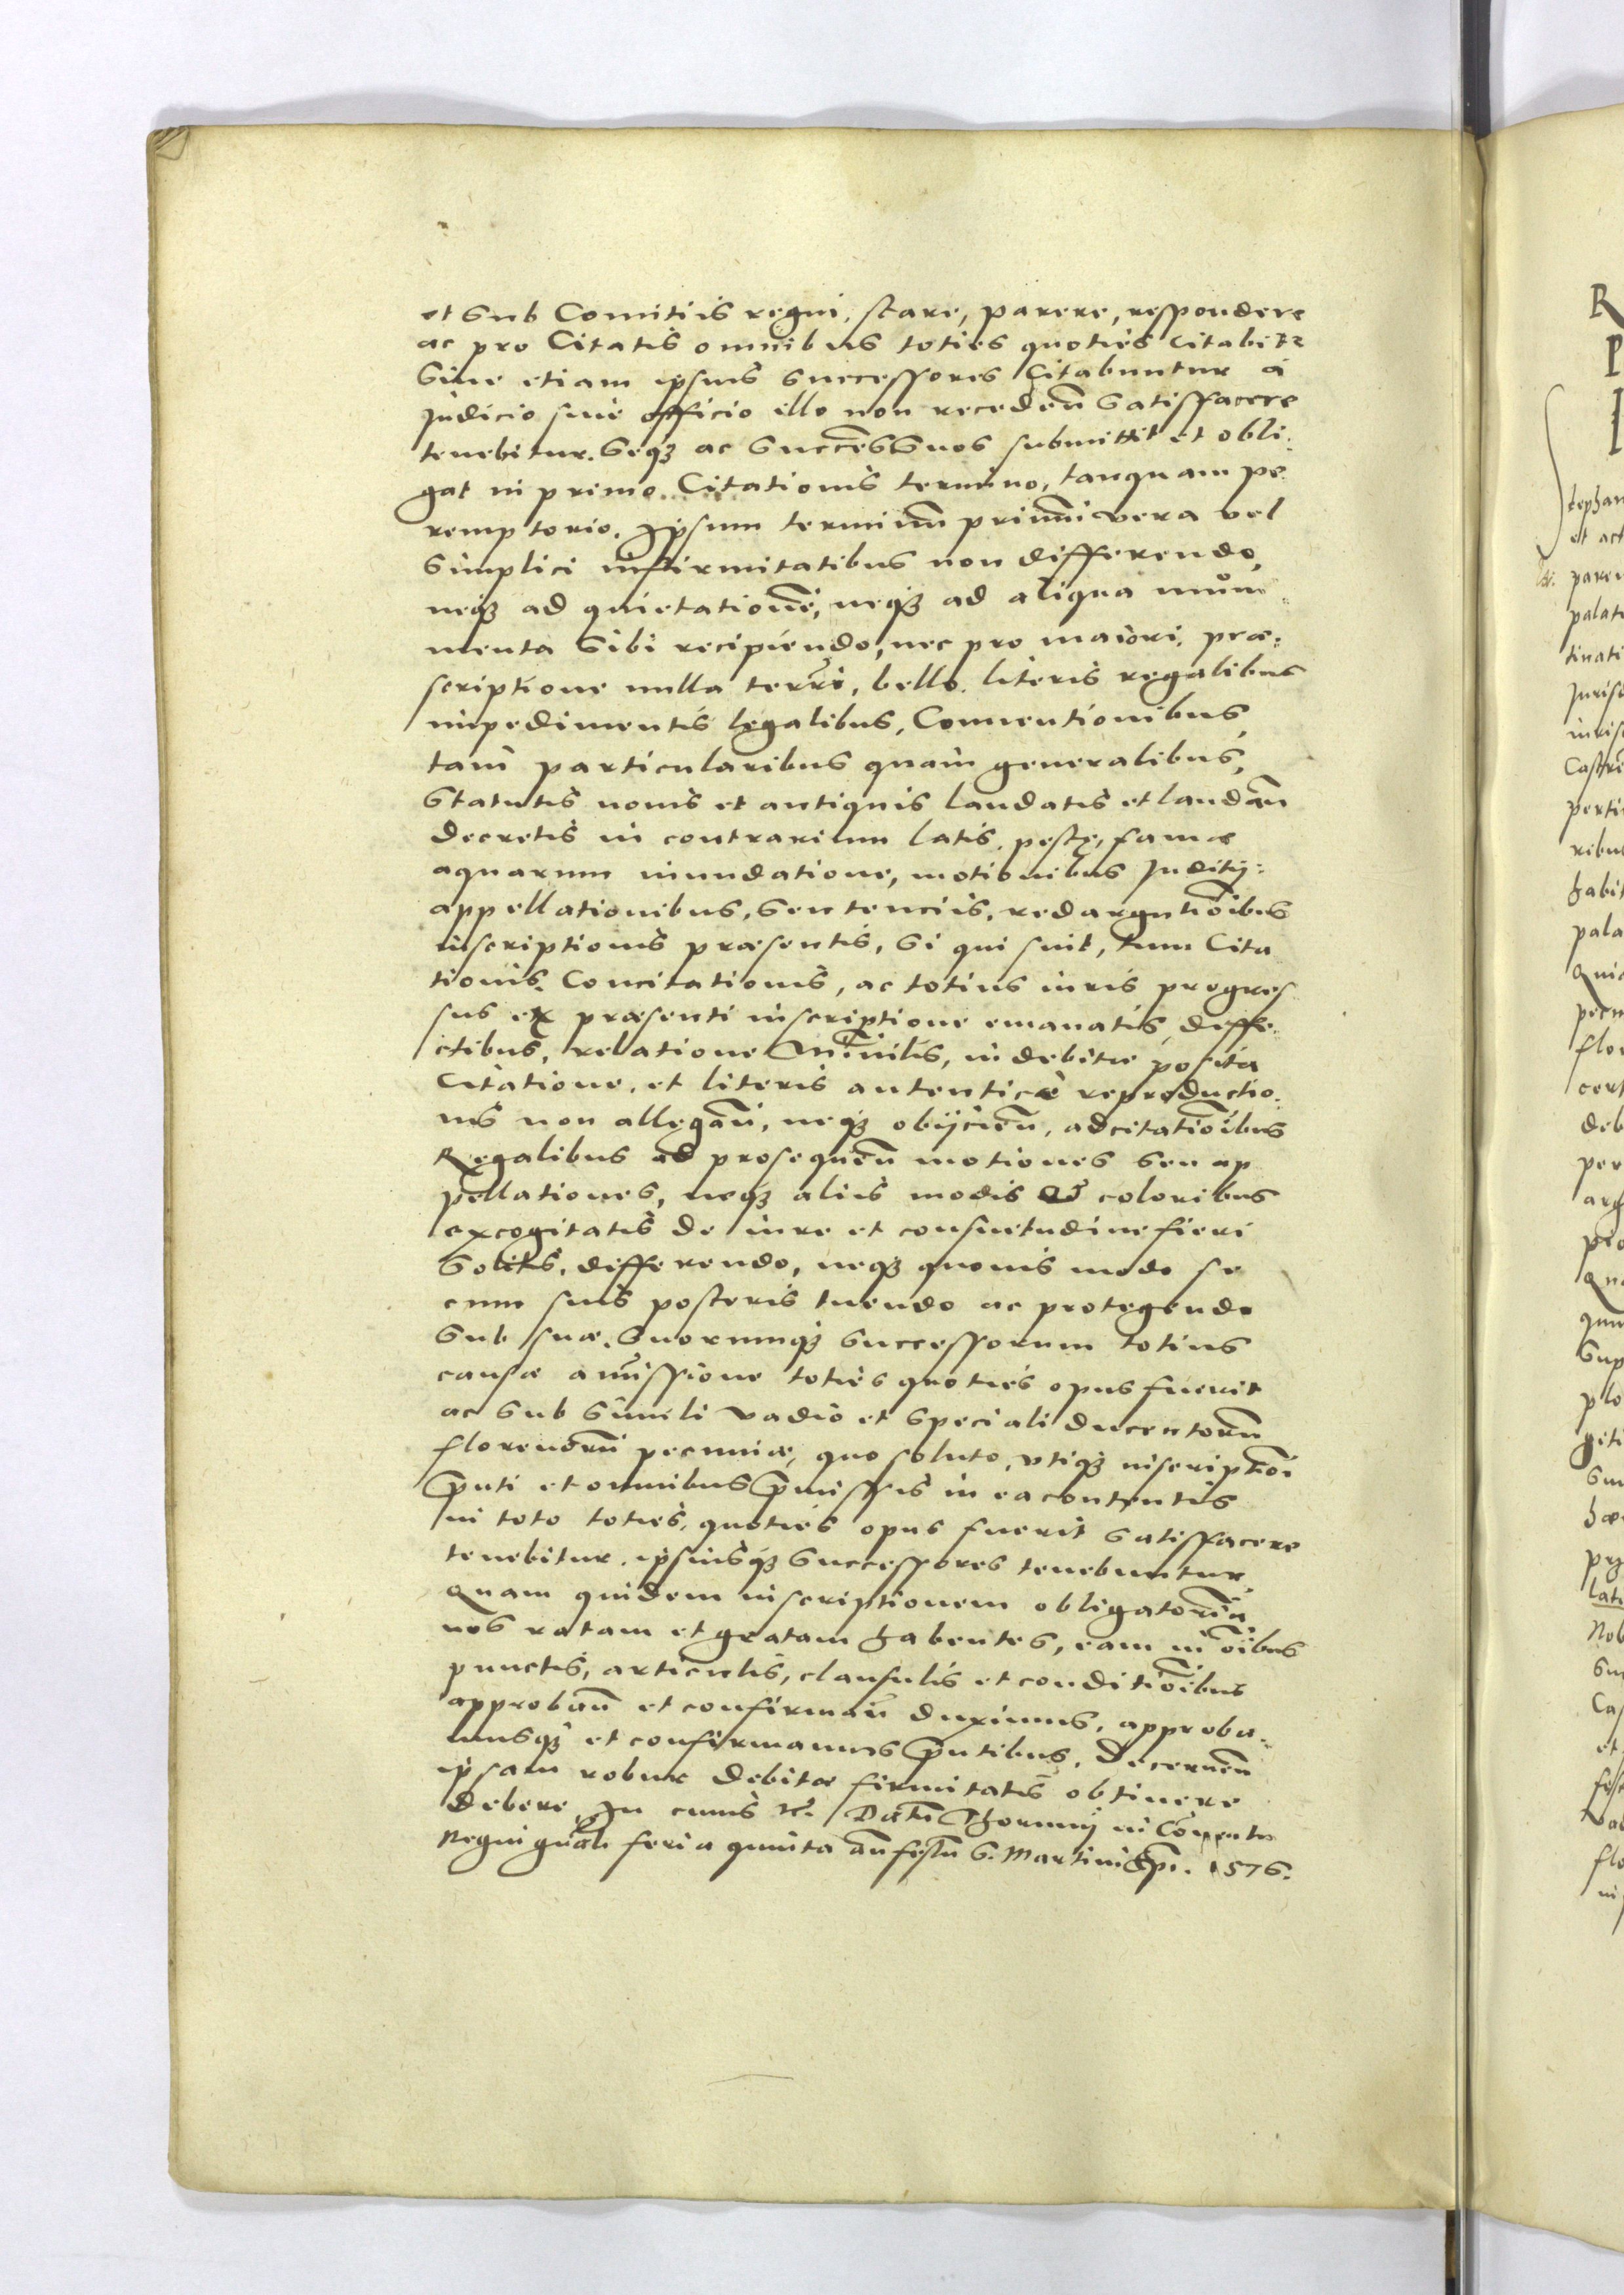 et sub Comitiis regni, stare, parere, respondere
ac pro Citatis omnibus toties quoties citabitr
siue etiam ipsius successores Citabuntur à
Judicio siue officio illo non recedeñ satisffacere
tenebitur. seq3 ac succes̄ suos submittit et obli:
gat in primo Citationis termino, tanquam pe
remptorio. Ipsum terminum̄ primum̄ vera vel
simplici infirmitatibus non differendo,
neq3 ad quietationē, neq3 ad aliqua muni
menta sibi recipiendo, nec pro maiori, præ:
scriptione nulla terrī, bello, literis regalibus
impedimentis legalibus, Conuentionibus,
tam particularibus quàm generalibus,
Statutis nouis et antiquis laudatis et laudañ
decretis in contrarium latis, peste, fame
aquarum inundatione, motionibus Juditij:
appellationibus, sentenciis, redargutiōibus
inscriptionis præsentis, si qui sint, tum Cita
tionis, Concitationis, ac totius iuris progres
sus ex præsenti inscriptione emanatis, deffe:
ctibus, relatione Mīnilis, indebitæ posita
Citatione, et literis autenticæ reproductio:
nis non allegañ, neq3 obijcieñ, adcitatiōibus
Regalibus ad prosequeñ motiones seu ap
pellationes, neq3 aliis modis & coloribus
excogitatis de iure et consuetudine fieri
solitis, differendo, neq3 quouis modo se
cum suis posteris tuendo ac protegendo
sub suæ. suorumq3 successorum totius
causæ amissione toties quoties opus fuerit
ac sub simili vadio et speciali ducentorū
florenorū pecuniæ, quo soluto, vtiq3 inscriptiōi
p̄nti et omnibus p̄missis in ea contentis
in toto toties, quoties opus fuerit satisffacere
tenebitur, ipsiusq3 successores tenebuntur,
Quam quidem inscriptionem obligatoriā
nos ratam et gratam habentes, eam in ōibus
punctis, articulis, clausulis et conditiōibus
approbañ et confirmañ duximus, approba:
musq3 et confirmamus p̄ntibus. Decerneñ
ipsam robur debitæ firmitatis obtinere
debere. In cuius rē. Datū Thorunij in Cōuentu
Regni gñali feria quinta añ festū S. Martini Ep̄i. 1576.